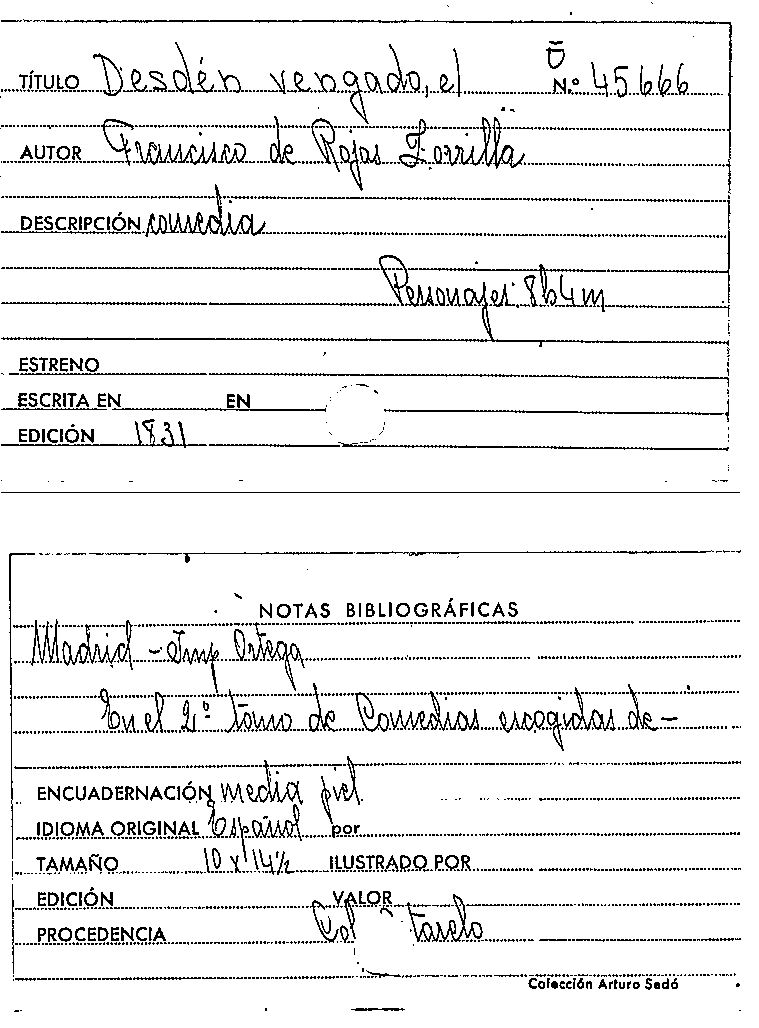 TÍTULO Desdén vengado, el Ū N.º 45666
AUTOR Francisco de Rojas Zorrilla
DESCRIPCIÓN comedia
Personajes: 8h4m
ESTRENO
ESCRITA EN EN
EDICIÓN 1831
NOTAS BIBLIOGRÁFICAS
Madrid - Imp Ortega
En el 2º tomo de Comedias escogidas de -
ENCUADERNACIÓN media piel
IDIOMA ORIGINAL Español por
TAMAÑO 10 x 14½ ILUSTRADO POR
EDICIÓN VALOR
PROCEDENCIA Col
Colección Arturo Sedó